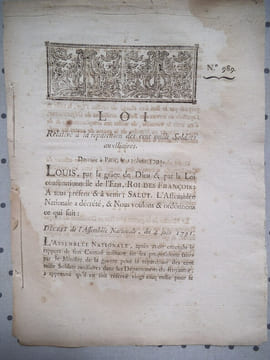 N.º 989.
LOI
Relative à la répartition des cent mille Soldats
auxiliaires.
Donnée à Paris, le
LOUIS, par la grâce de Dieu & par la Loi
constitutionnelle de l'État, ROI DES FRANÇOIS:
A tous présens & à venir; SALUT. L'Assemblée
Nationale a décrété, & Nous voulons & ordonnons
ce qui suit:
DÉCRET de l'Assemblée Nationale, du 4 Juin 1791.
L'ASSEMBLÉE NATIONALE, après avoir entendu le
rapport de son Comité militaire sur les
par le Ministre de la guerre pour la répartition des cent
mille Soldats auxiliaires dans les Départemens du Royaume,
a approuvé qu'il en soit réservé vingt-cinq mille pour le